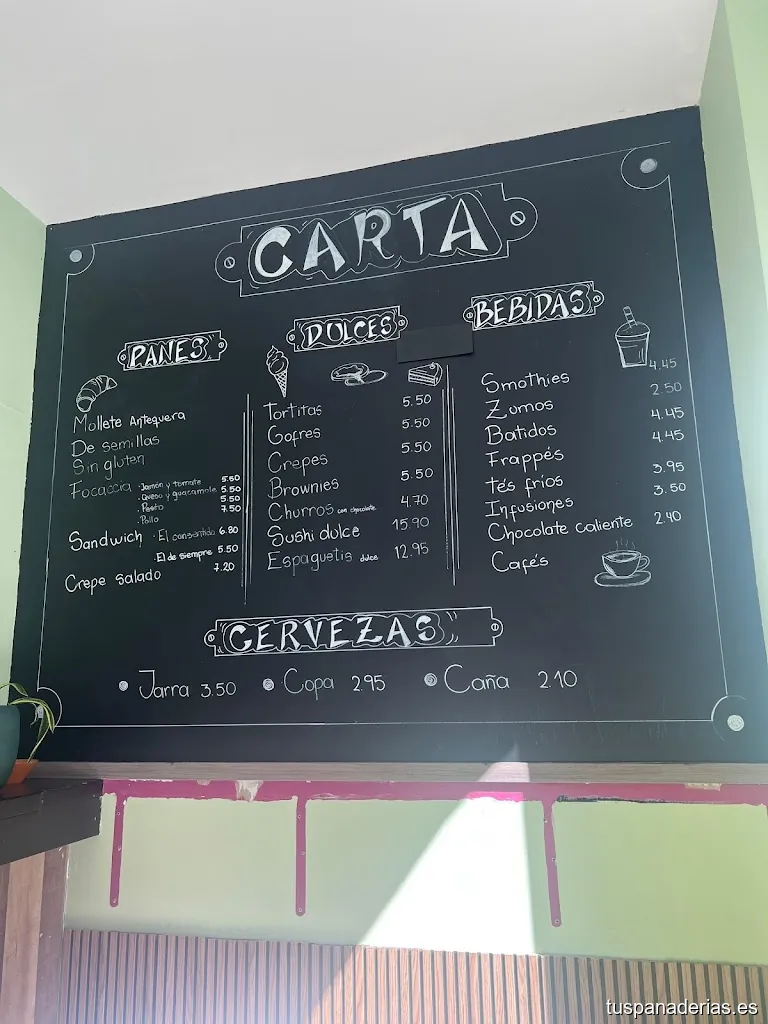 CARTA
PANES
Mollete Antequera
De semillas
Sin gluten
Focaccia · Jamón y tomate 5.50
· Queso y guacamole 5.50
· Pesto 5.50
· Pollo 7.50
Sandwich · El consentido 6.80
· El de siempre 5.50
Crepe salado 7.20
DULCES
Tortitas 5.50
Gofres 5.50
Crepes 5.50
Brownies 5.50
Churros con chocolate 4.70
Sushi dulce 15.90
Espaguetis dulce 12.95
BEBIDAS
Smothies 4.45
Zumos 2.50
Batidos 4.45
Frappés 4.45
tés fríos 3.95
Infusiones 3.50
Chocolate caliente 2.40
Cafés
CERVEZAS
Jarra 3.50 Copa 2.95 Caña 2.10
tuspanaderias.es